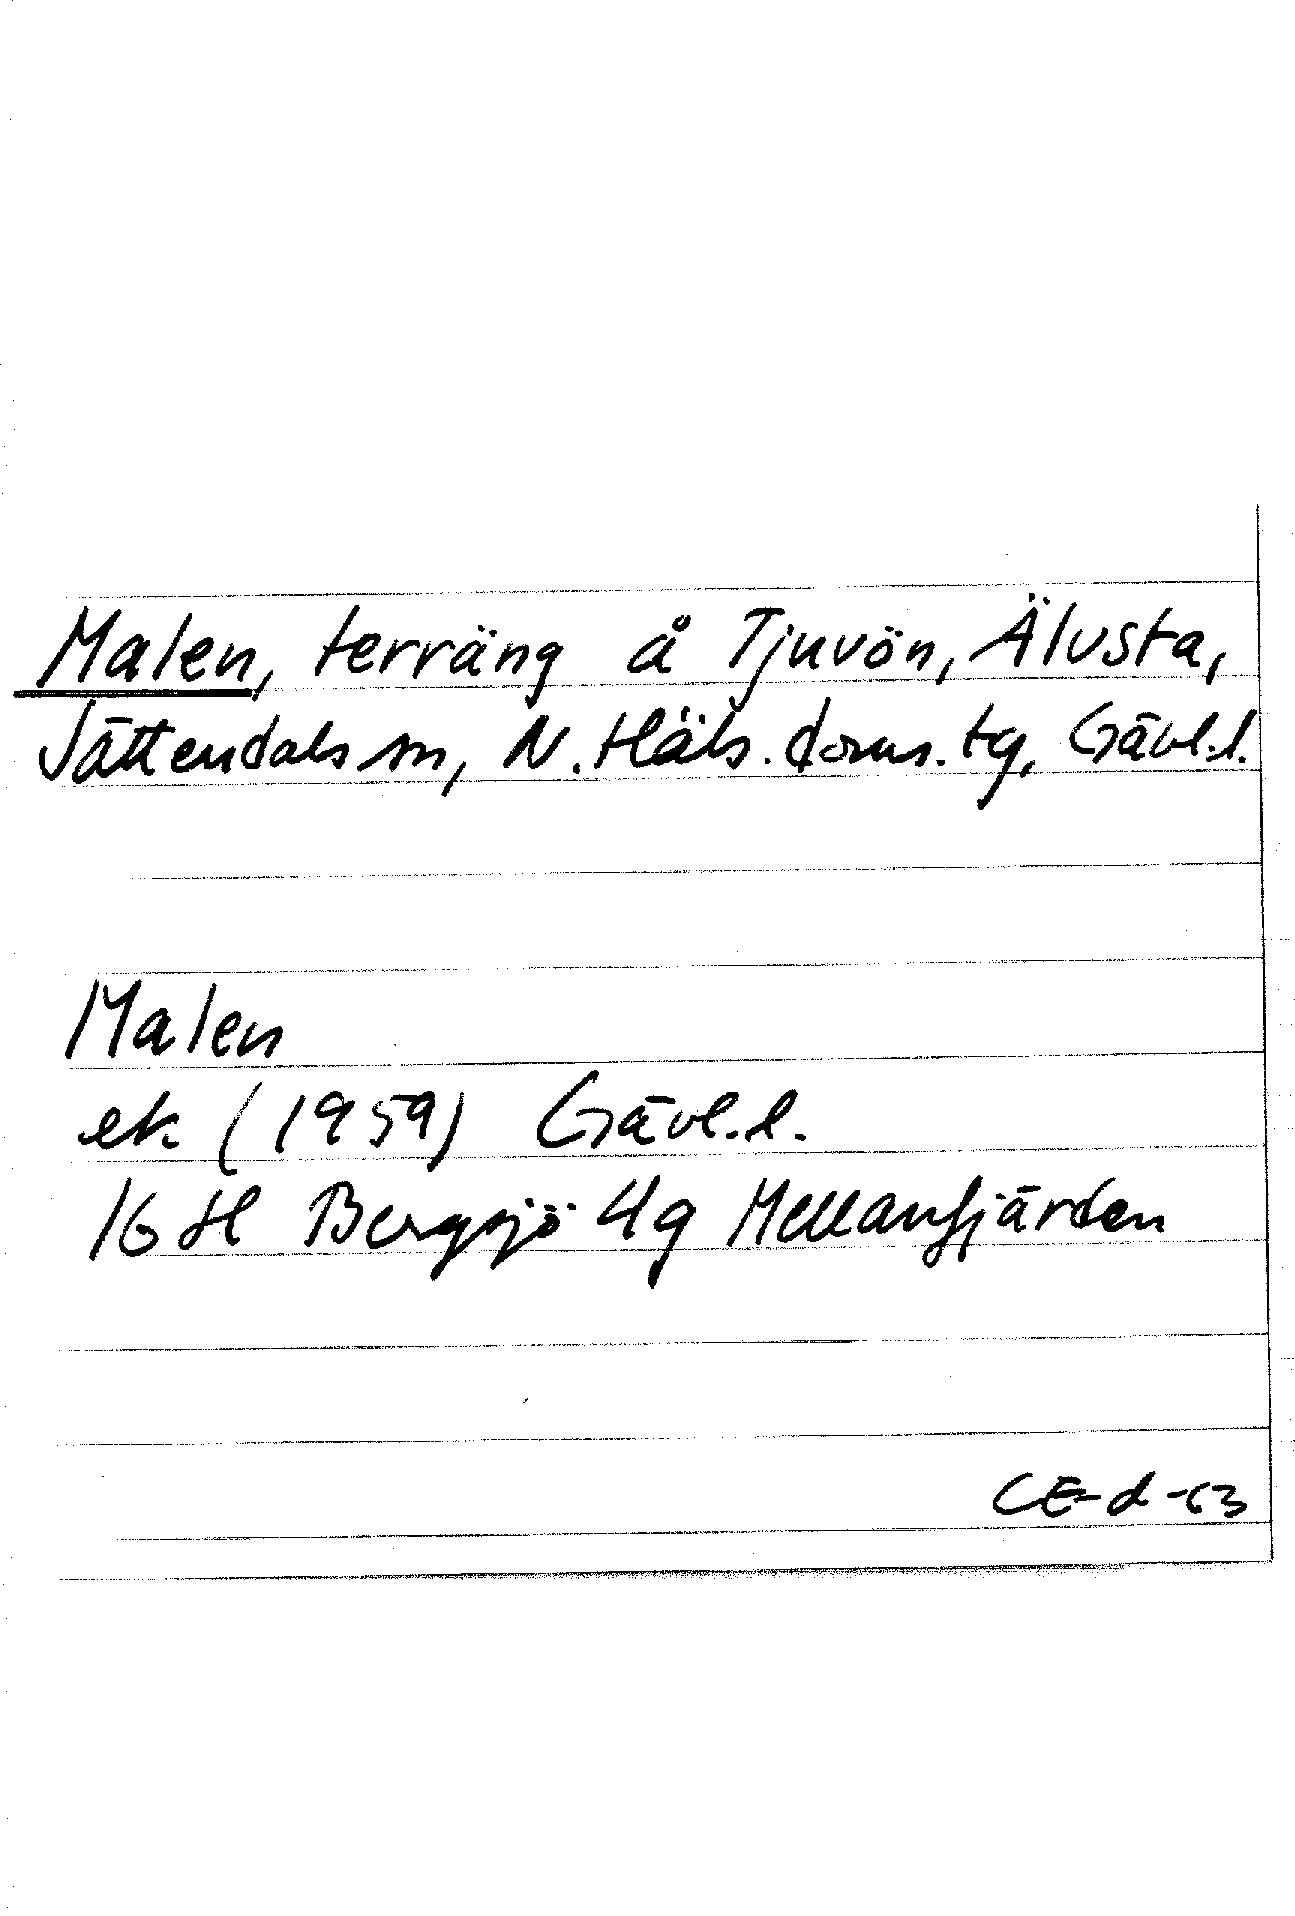 Malen, terräng å Tjuvön, Älvsta,
Jättendals sn, N. Häls. doms. tg, Gävl.l.
Malen
ek (1959) Gävl.l.
16 H Bergsjö 4g Mellanfjärden
CE-d-63